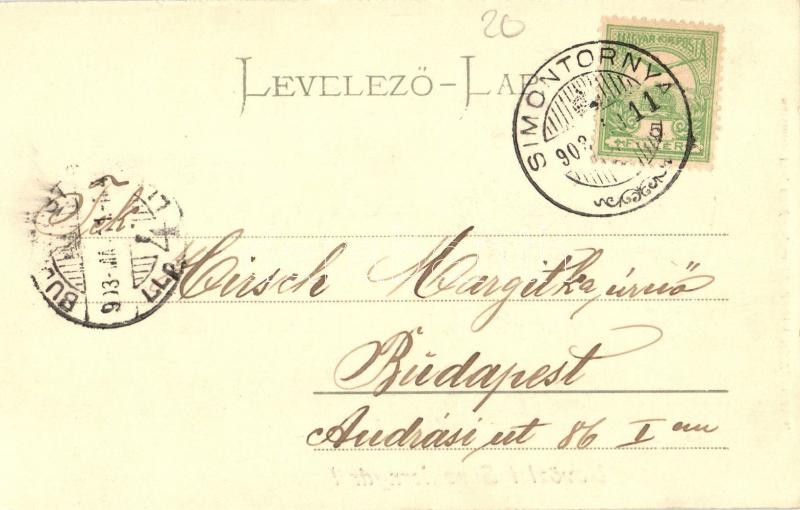 20
LEVELEZŐ-LAP
MAGYAR KIR. POSTA
5
FILLÉR
SIMONTORNYA
903
11
BUD
903 MA
Tek.
Hirsch Margitka úrnő
Budapest
Andrási ut 86 I em